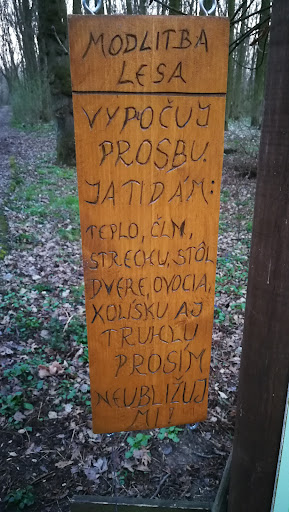 MODLITBA
LESA
VYPOČUJ
PROSBU.
JA TI DÁM:
TEPLO, ČLN,
STRECHU, STÔL
DVERE, OVOCIA,
KOLÍSKU AJ
TRUHLU
PROSÍM
NEUBLIŽUJ
MI!